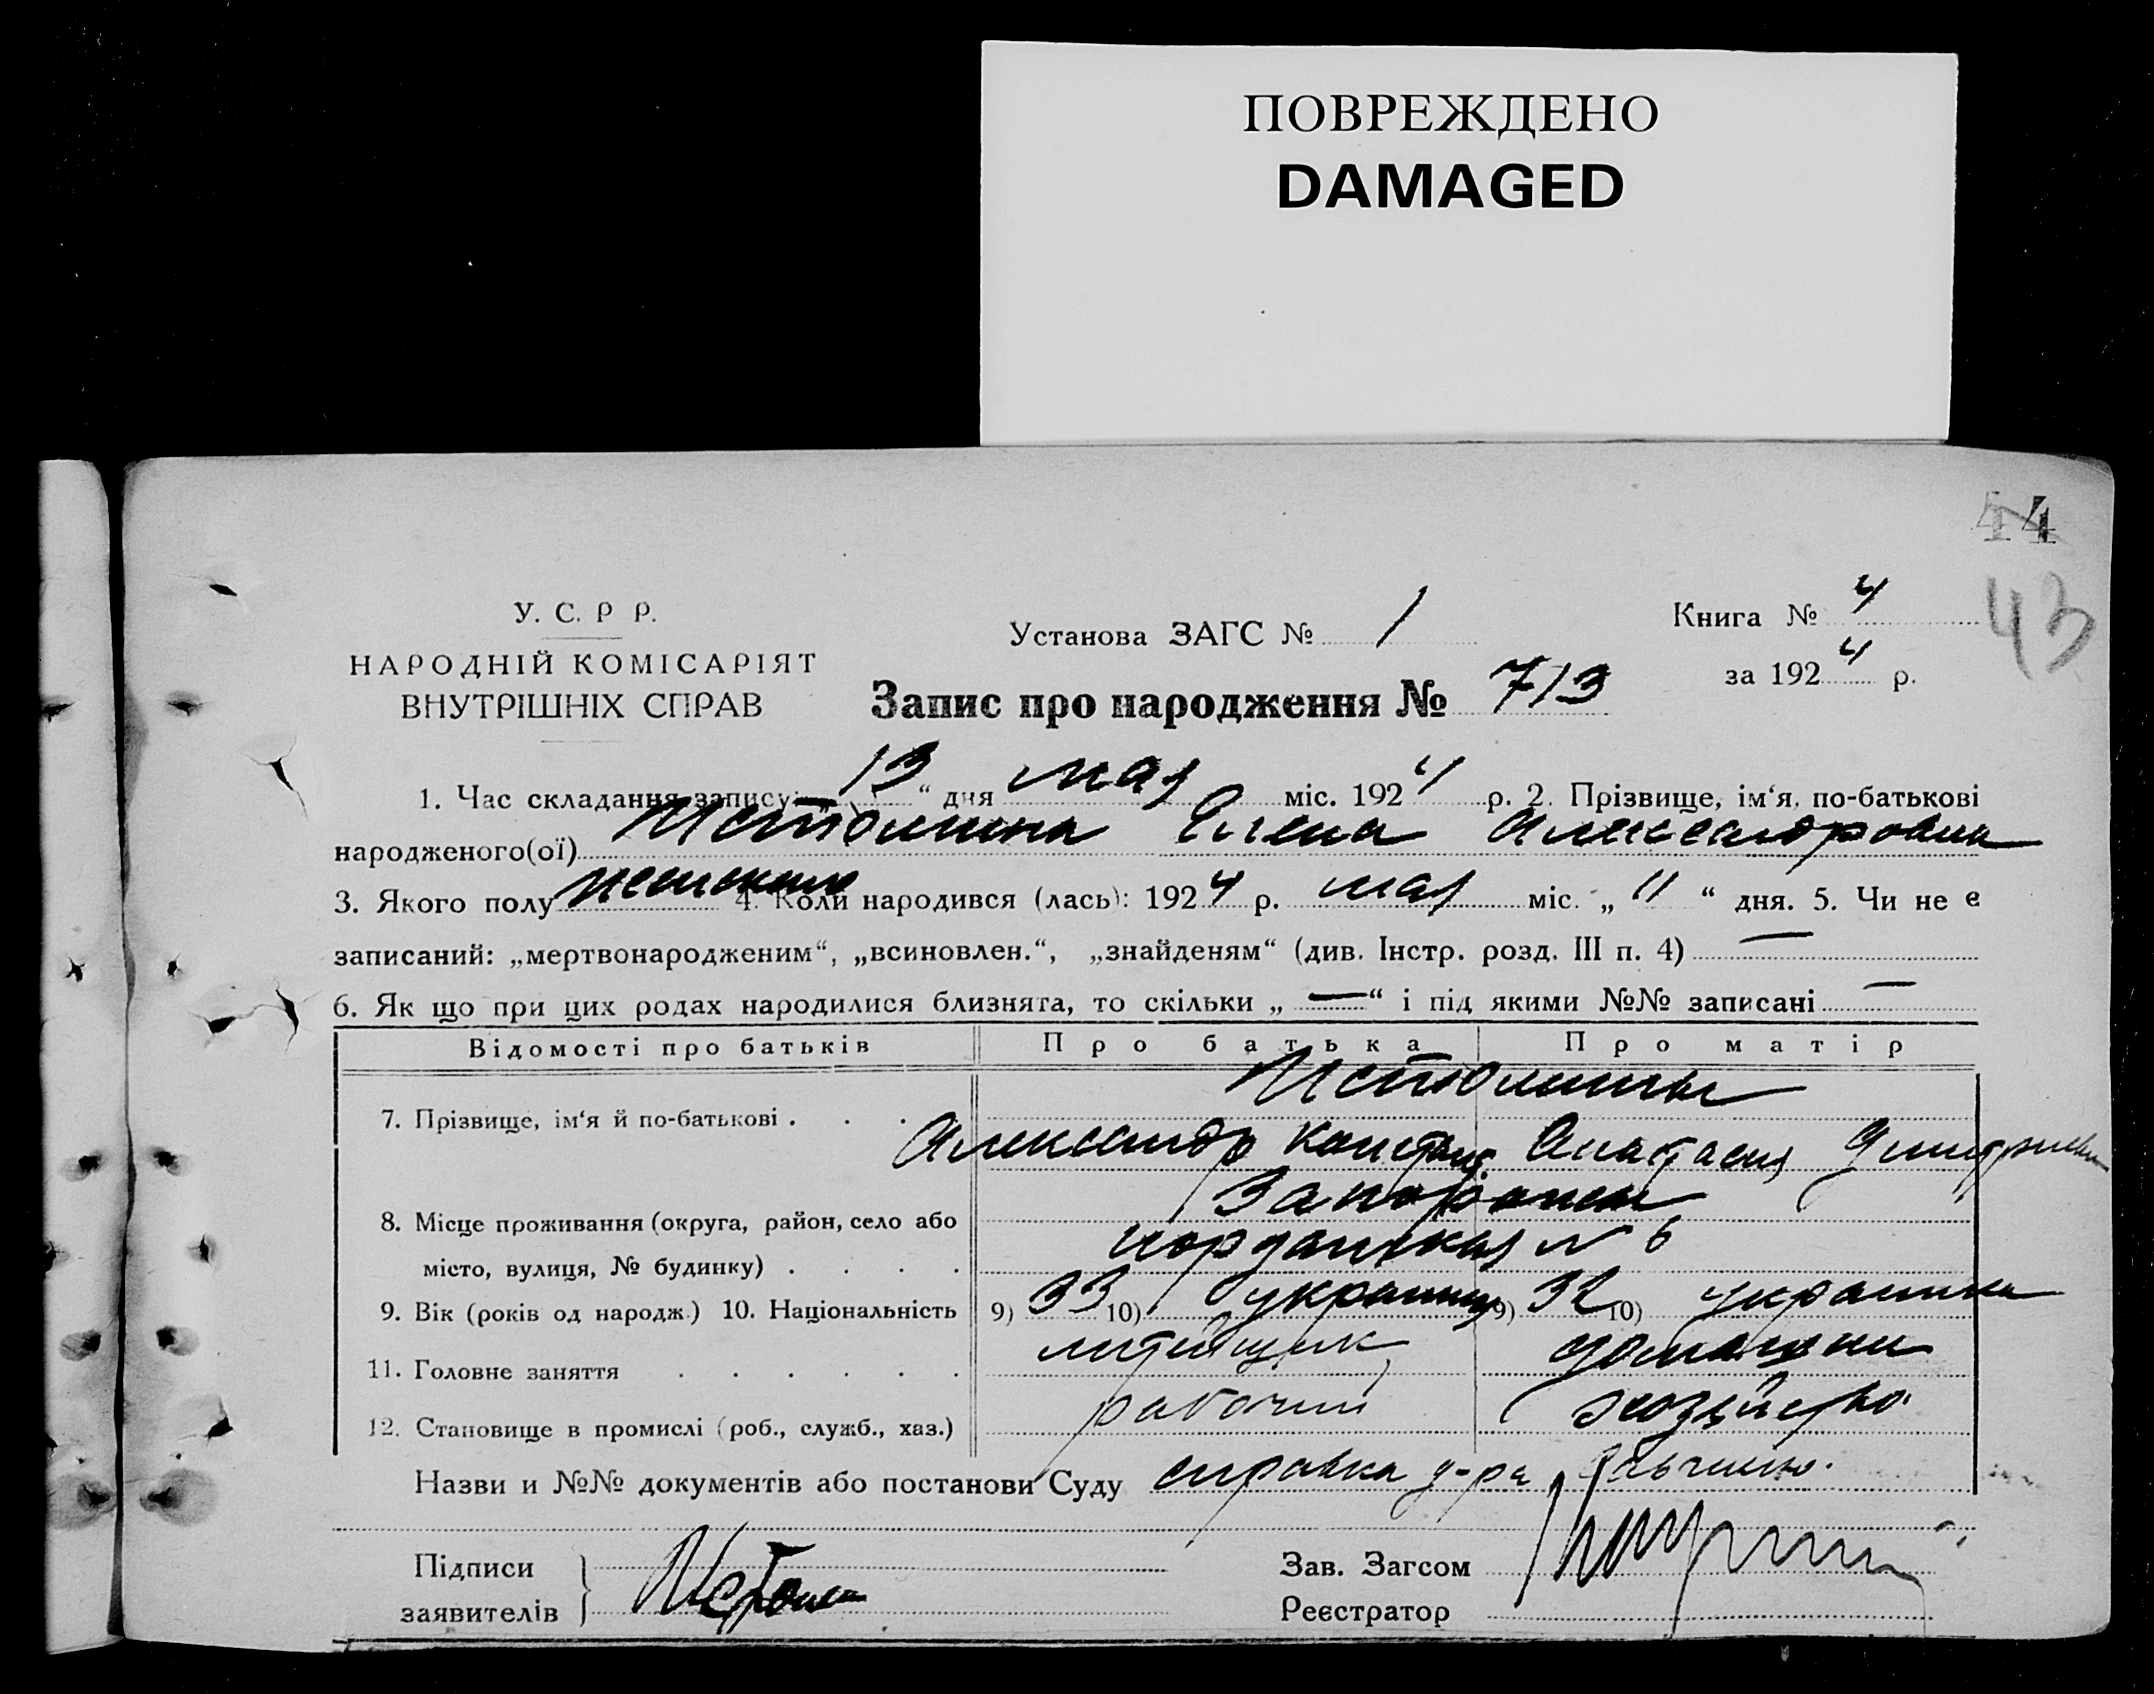 ПОВРЕЖДЕНО
DAMAGED
44
43
У. С. Р Р.
НАРОДНІЙ КОМІСАРІЯТ
ВНУТРІШНІХ СПРАВ
Установа ЗАГС № 1
Книга № 4
за 1924 р.
Запис про народження № 713
1. Час складання запису: „13“ дня мая міс. 1924 р. 2. Прізвище, ім‘я, по-батькові
народженого(ої) Елена Александровна
3. Якого полу женского 4. Коли народився (лась): 1924 р. мая міс. „11“ дня. 5. Чи не є
записаний: „мертвонародженим“, „всиновлен.“, „знайденям“ (див. Інстр. розд. III п. 4) —
6. Як що при цих родах народилися близнята, то скільки „—“ і під якими №№ записані —
Відомості про батьків Про батька Про матір
7. Прізвище, ім‘я й по-батькові . . .
Александр Констант. Анастасия
8. Місце проживання (округа, район, село або Запорожье
місто, вулиця, № будинку) . . . . № 6
9. Вік (років од народж.) 10. Національність 9) 33 10) украинец 9) 32 10) украинка
11. Головне заняття . . . . . . литейщик домашни
12. Становище в промислі (роб., служб., хаз.) рабочий хозяйство.
Назви и №№ документів або постанови Суду справка д-ра
Підписи
заявителів
Зав. Загсом
Реєстратор